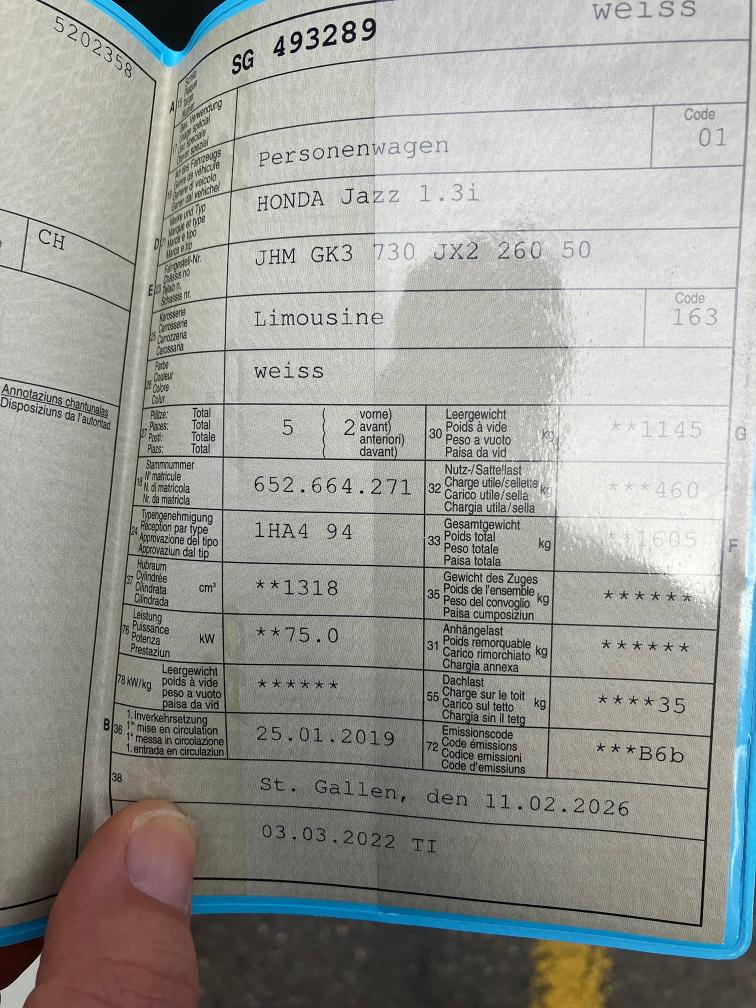 5202358
CH
Annotaziuns chantunalas
Disposiziuns da l'autoritad
weiss
SG 493289
A 15 Schild
Plaque
Targa
Bes. Verwendung
Usage spécial
Uso speciale
Diever spezial
Art des Fahrzeugs
Genre de véhicule
Genere di veicolo
Gener dal vehichel
Personenwagen
Code
01
D Marke und Typ
Marque et type
Marca e tipo
Marca e tip
HONDA Jazz 1.3i
E 23 Fahrgestell-Nr.
Châssis no
Telaio n.
Schassis nr.
JHM GK3 730 JX2 260 50
25 Karosserie
Carrosserie
Carrozzeria
Carossaria
Limousine
Code
163
26 Farbe
Couleur
Colore
Colur
weiss
27 Plätze: Total
Places: Total
Posti: Totale
Plazs: Total
5 ( 2 vorne)
avant)
anteriori)
davant)
30 Leergewicht
Poids à vide
Peso a vuoto
Paisa da vid
kg
**1145
G
18 Stammnummer
N° matricule
N. di matricola
Nr. da matricla
652.664.271
32 Nutz-/Sattellast
Charge utile/sellette
Carico utile/sella
Chargia utila/sella
kg
***460
24 Typengenehmigung
Réception par type
Approvazione del tipo
Approvaziun dal tip
1HA4 94
33 Gesamtgewicht
Poids total
Peso totale
Paisa totala
kg
**1605
F
37 Hubraum
Cylindrée
Cilindrata
Cilindrada
cm³
**1318
35 Gewicht des Zuges
Poids de l'ensemble
Peso del convoglio
Paisa cumposiziun
kg
******
76 Leistung
Puissance
Potenza
Prestaziun
kW
**75.0
31 Anhängelast
Poids remorquable
Carico rimorchiato
Chargia annexa
kg
******
78 kW/kg Leergewicht
poids à vide
peso a vuoto
paisa da vid
******
55 Dachlast
Charge sur le toit
Carico sul tetto
Chargia sin il tetg
kg
****35
B 36 1. Inverkehrsetzung
1re mise en circulation
1a messa in circolazione
1. entrada en circulaziun
25.01.2019
72 Emissionscode
Code émissions
Codice emissioni
Code d'emissiuns
***B6b
38
St. Gallen, den 11.02.2026
03.03.2022 TI